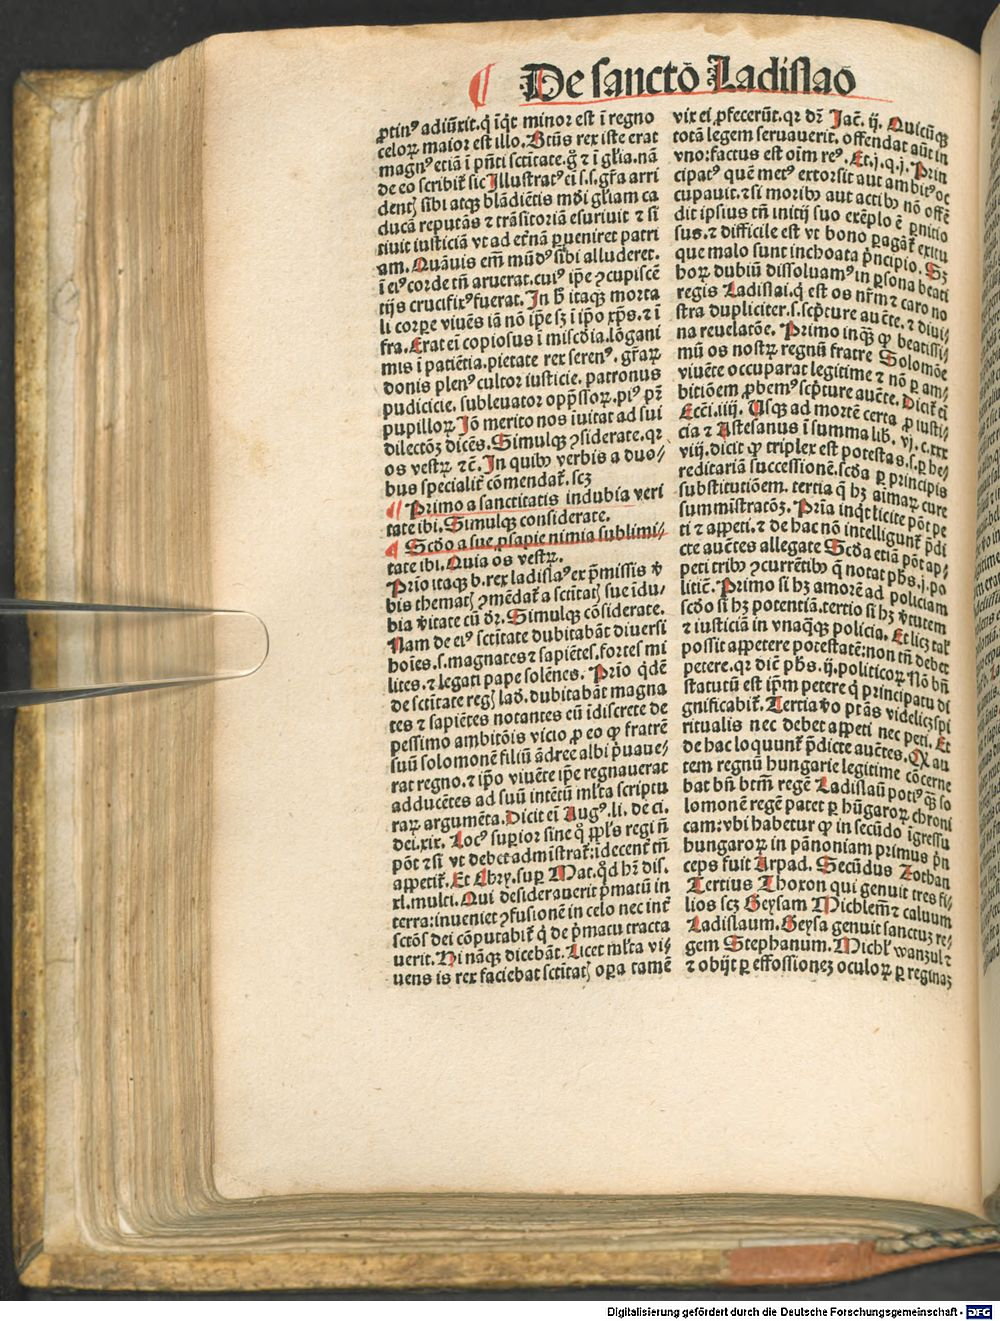 ¶ De sanctō Ladislaō
ꝓtinꝰ adiūxit. q̄ īq̄t minor est ī regno
celoꝝ maior est illo. Btūs rex iste erat
magnꝰ etiā ī p̄nti sctitate. ḡ ⁊ ī gl̄ia. nā
de eo scribit̄ sic Illustratꝰ ei .s.s. gr̄a arri
dentꝭ sibi atqꝫ blādiētis mūdi gl̄iam ca
ducā reputās ⁊ trāsitoriā esuriuit ⁊ si
tiuit iusticiā vt ad et̄nā ꝑueniret patri
am. Quāuis em̄ mūdꝰ sibi alluderet.
ī eiꝰ corde tn̄ aruerat. cuiꝰ ip̄e ꝯcupiscē
tijs crucifixꝰ fuerat. In h̄ itaqꝫ morta
li corꝑe viuēs iā nō ip̄e sꝫ ī ip̄o xp̄s. ⁊ ī
fra. Erat ei copiosus ī mīscd̄ia. lōgani
mis ī patiētia. pietate rex serenꝰ. gr̄aꝝ
donis plenꝰ cultor iusticie. patronus
pudicicie. subleuator opp̄ssoꝝ. piꝰ pr̄
pupilloꝝ Iō merito nos iuitat ad sui
dilectōꝫ dicēs. Simulqꝫ ꝯsiderate. qr
os vestꝝ ⁊c̄. In quibꝰ verbis a duo⸗
bus specialit̄ cōmendat̄. scꝫ
¶ Primo a sanctitatis indubia veri
tate ibi. Simulqꝫ considerate.
¶ Scd̄o a sue ꝓsapie nimia sublimi⸗
tate ibi. Quia os vestꝝ.
Prīo itaqꝫ b. rex ladislaꝰ ex p̄missis v̄
bis thematꝭ ꝯmēdat̄ a sctitatꝭ sue idu⸗
bia v̄itate cū dr̄. Simulqꝫ cōsiderate.
Nam de eiꝰ sctitate dubitabāt diuersi
hoīes. s. magnates ⁊ sapiētes. fortes mi
lites. ⁊ legati pape solēnes. Prīo qdē
de sctitate regꝭ lad̄. dubitabāt magna
tes ⁊ sapiētes notantes eū īdiscrete de
pessimo ambitōis vicio ꝓ eo ꝙ fratrē
suū solomonē filiū ādree albi p̄uaue⸗
rat regno. ⁊ ip̄o viuēte ip̄e regnauerat
adducētes ad suū intētū ml̄ta scriptu
raꝝ argumēta. Dicit ei Augꝰ. li. de ci.
dei. xix. Locꝰ suꝑior sine q̊ ppl̄s regi n̄
pōt ⁊ si vt debet admistrat̄: idecent̄ tn̄
appetit̄. Et Chry. suꝑ Mat. q̊d hꝫ dis.
xl. multi. Qui desiderauerit p̄matū in
terra: inueniet ꝯfusionē in celo nec int̄
sctōs dei cōputabit̄ q̇ de p̄matu tracta
uerit. Hi nāqꝫ dicebāt. Licet ml̄ta vi⸗
uens is rex faciebat sctitatꝭ oꝑa tamē
vix ei ꝓfecerūt. qr dr̄ Iac̄. ij. Quicūqꝫ
totā legem seruauerit. offendat aūt in
vno: factus est oīm reꝰ. Et .j. q. j. Prin
cipatꝰ quē metꝰ extorsit aut ambitꝰ oc
cupauit. ⁊ si moribꝰ aut actibꝰ nō offē
dit ipsius tn̄ initij suo exēplo ē ꝑnitio
sus. ⁊ difficile est vt bono ꝑagāt̄ exitu
que malo sunt inchoata p̄ncipio. Sꝫ
hoꝝ dubiū dissoluamꝰ in ꝑsona beati
regis Ladislai. q̇ est os nr̄m ⁊ caro no
stra dupliciter. s. scp̄ture auc̄te. ⁊ diui⸗
na reuelatōe. Primo inqꝫ ꝙ beatissi⸗
mū os nostꝝ regnū fratre Solomōe
viuēte occuparat legitime ⁊ nō ꝑ am⸗
bitiōem ꝓbemꝰ scp̄ture auc̄te. Dicit̄ ei
Ecc̄i. iiij. Usqꝫ ad mortē certa ꝓ iusti⸗
cia ⁊ Astesanus ī summa lib. vj. c. xxx
viij. dicit ꝙ triplex est potestas. s. ꝑ he⸗
reditariā successionē. scd̄a ꝑ principis
substitutiōem. tertia q̄ hꝫ aīmaꝝ cure
summistratōꝫ. Prīa inqt̄ licite pōt pe
ti ⁊ appeti. ⁊ de hac nō intelligunt̄ p̄di
cte auctēs allegate Scd̄a etiā pōt ap⸗
peti tribꝰ ꝯcurrētibꝰ q̄ notat ph̄s. j. po
litic̄. Primo si hꝫ amorē ad policiam
scd̄o si hꝫ potentiā. tertio si hꝫ v̄tutem
⁊ iusticiā in vnaq̄qꝫ policia. Et licꝫ tal̄
possit appetere potestatē: non tn̄ debet
petere. qr dic̄ ph̄s. ij. politicoꝝ Nō bn̄
statutū est ip̄m petere q̇ principatu di
gnificabit̄. Tertia v̄o pt̄as videlicꝫ spi
ritualis nec debet appeti nec peti. Et
de hac loquunt̄ p̄dicte auctēs. Qꝫ au
tem regnū hungarie legitime cōcerne
bat bn̄ btm̄ regē Ladislaū potiꝰ q̄ꝫ so
lomonē regē patet ꝑ hūgaroꝝ chroni
cam: vbi habetur ꝙ in secūdo īgressu
hungaroꝝ in pānoniam primus p̄n
ceps fuit Arpad. Secūdus Zothan
Tertius Thoxon qui genuit tres fi⸗
lios scꝫ Geysam Michlem̄ ⁊ caluum
Ladislaum. Geysa genuit sanctuꝫ re⸗
gem Stephanum. Michl̄ wanzul ⁊
⁊ obijt ꝑ effossioneꝫ oculoꝝ ꝑ reginaꝫ
Digitalisierung gefördert durch die Deutsche Forschungsgemeinschaft - DFG